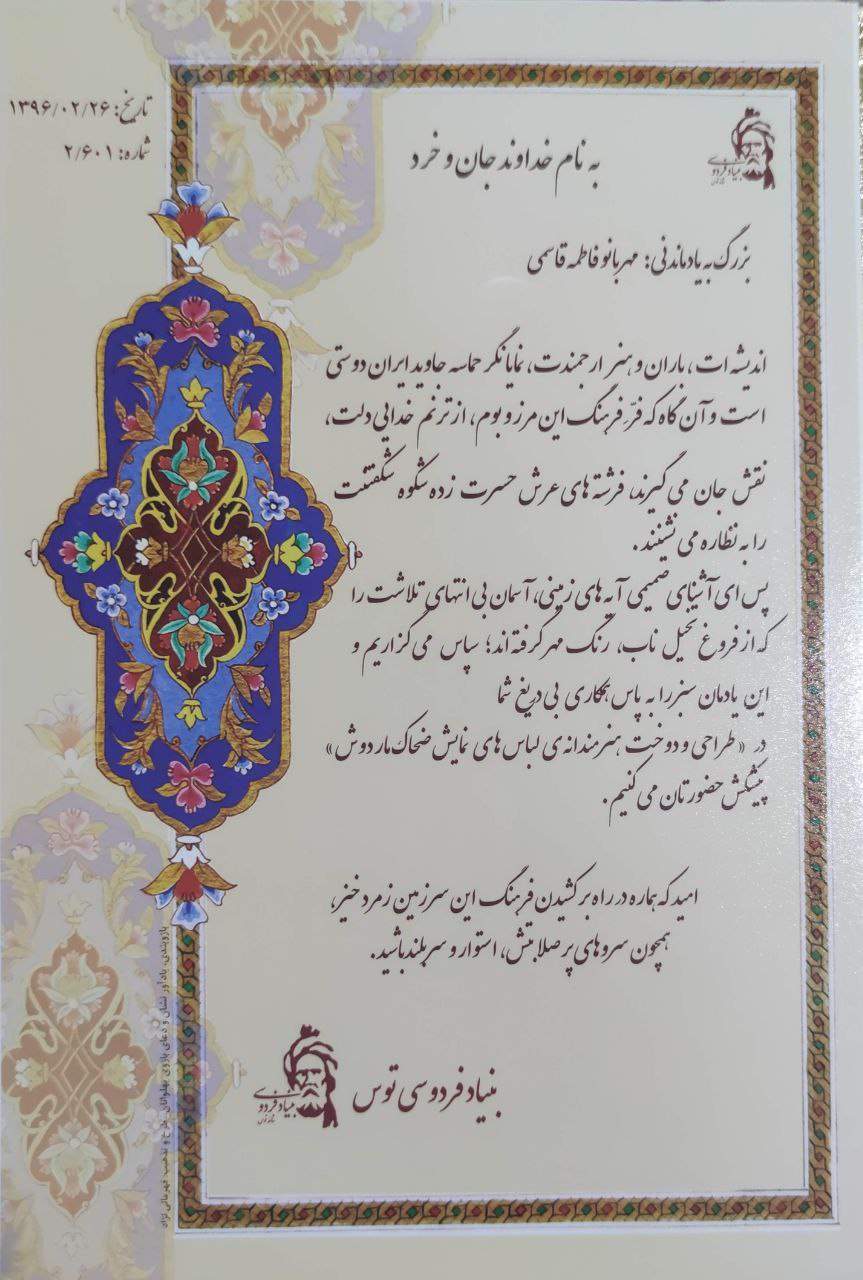 تاریخ: ۱۳۹۶/۰۲/۲۶
شماره: ۲/۶۰۱
بنیاد فردوسی
توس
به نام خداوند جان و خرد
بزرگ به یادماندنی: مهربانو فاطمه قاسمی
اندیشه ات، باران و هنر ارجمندت، نمایانگر حماسه جاوید ایران دوستی
است و آن گاه که فرّ فرهنگ این مرز و بوم، از ترنم خدایی دلت،
نقش جان می گیرند، فرشته های عرش حسرت زده شکوه شگفتنت
را به نظاره می نشینند.
پس ای آشنای صمیمی آیه های زمینی، آسمان بی انتهای تلاشت را
که از فروغ تخیل ناب، رنگ مهر گرفته اند؛ سپاس می گزاریم و
این یادمان سبز را به پاس همکاری بی دریغ شما
در «طراحی و دوخت هنرمندانه ی لباس های نمایش ضحاک ماردوش»
پیشکش حضورتان می کنیم.
امید که هماره در راه برکشیدن فرهنگ این سرزمین زمردخیز،
همچون سروهای پرصلابتش، استوار و سربلند باشید.
بنیاد فردوسی توس
بنیاد فردوسی
توس
بازوبندی، یادآور نشان و دعای بازوی پهلوانان. طرح و تذهیب: قهرمانی نژاد